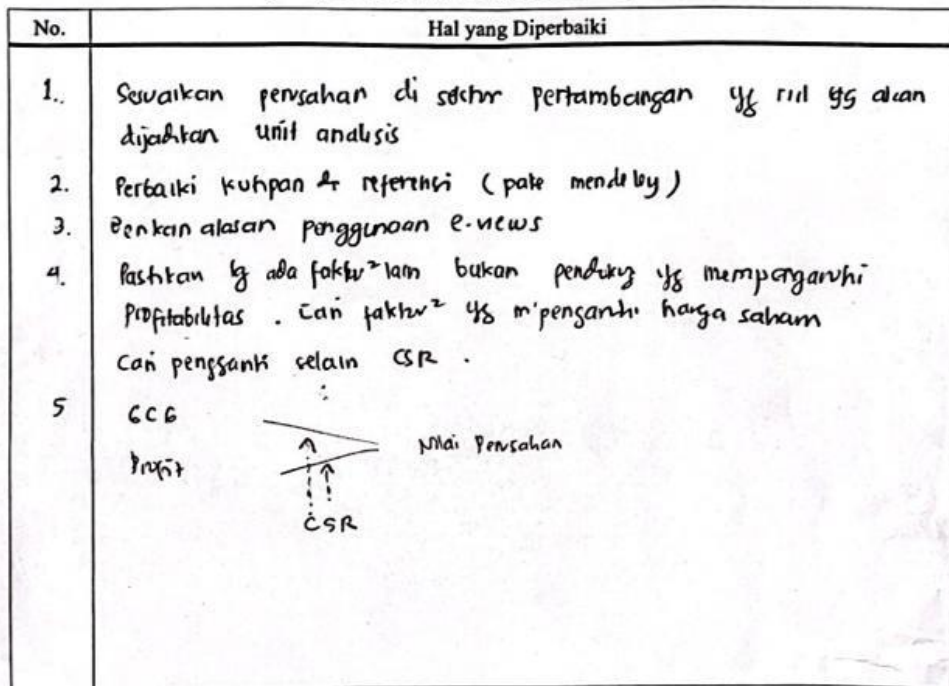 No. Hal yang Diperbaiki
1. Sesuaikan perusahan di sektor pertambangan yg riil yg akan
dijadikan unit analisis
2. Perbaiki kutipan & referensi (pake mendeley)
3. Berikan alasan penggunaan e-views
4. Pastikan lg ada faktor² lain bukan pendukung yg mempengaruhi
Profitabilitas. Cari faktor² yg m'pengaruhi harga saham
Cari pengganti selain CSR.
5 GCG
Profit
Nilai Perusahan
CSR